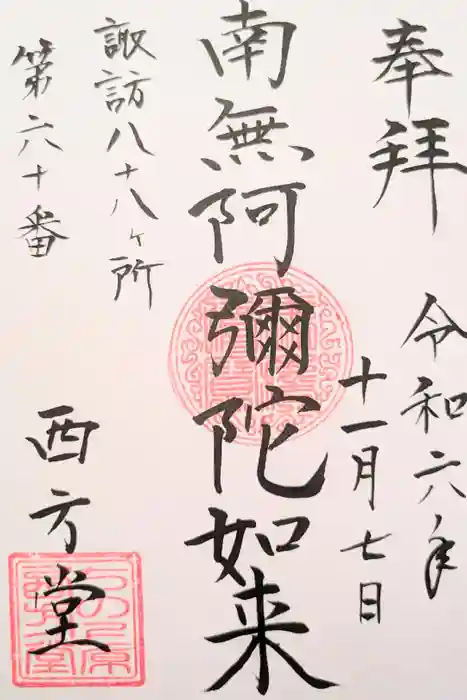 奉拝
令和六年
十一月七日
南無阿彌陀如来
諏訪八十八ヶ所
第六十番
西方堂